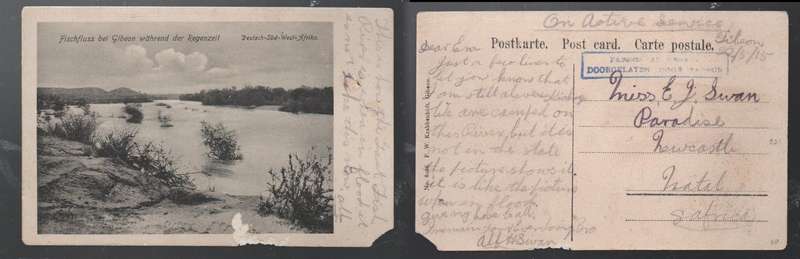 Fischfluss bei Gibeon während der Regenzeit
Deutsch-Süd-West-Afrika.
This is the Fish
River when flooded
On Active Service
Gibeon
/5/15
Postkarte. Post card. Carte postale.
PASSED BY CENSOR
DOORGELATEN DOOR CENSOR
Dear Em
Just a few lines to
let you know that
I am still alive
We are camped on
this River, but it is
not in the state
the picture shows it
it is like the picture
when in flood
love to all
I remain your ever loving Bro
Alf H Swan
Miss E J. Swan
Paradise
Newcastle
Natal
S Africa
Verlag F. W. Krabbenhöft, Gibeon